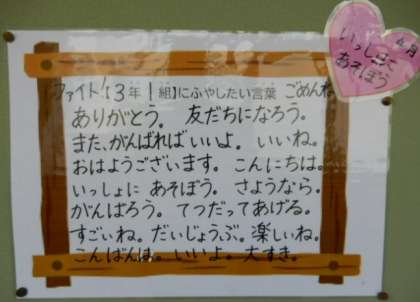 4月
いっしょに
あそぼう
ファイト!【3年1組】にふやしたい言葉 ごめんね
ありがとう。 友だちになろう。
また、がんばればいいよ。 いいね。
おはようございます。 こんにちは。
いっしょに あそぼう。 さようなら。
がんばろう。 てつだってあげる。
すごいね。だいじょうぶ。楽しいね。
こんばんは。 いいよ。 大すき。